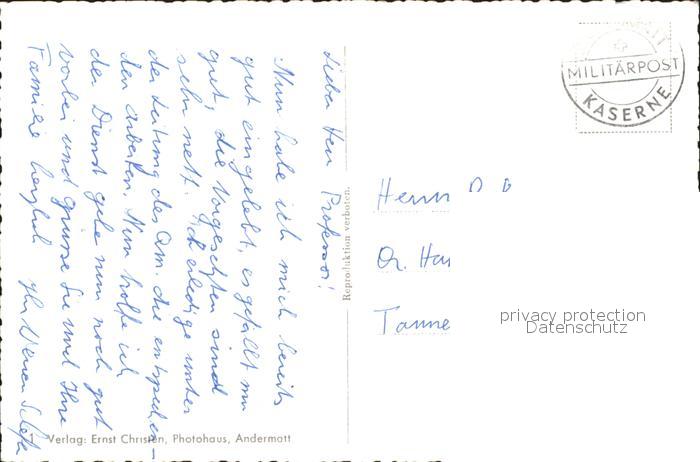 Lieber Herr Professor!
Nun habe ich mich bereits
gut eingelebt, es gefällt mir
gut, die Vorgesetzten sind
sehr nett. Ich erledige unter
der Leitung des Qm. die entsprechen-
den Arbeiten. Nun hoffe ich
der Dienst gehe nun noch gut
vorbei und grüsse Sie und Ihre
Familie herzlich Ihr Werner
Reproduktion verboten.
MILITÄRPOST
KASERNE
Herrn
Tanne
privacy protection
Datenschutz
Verlag: Ernst Christen, Photohaus, Andermatt